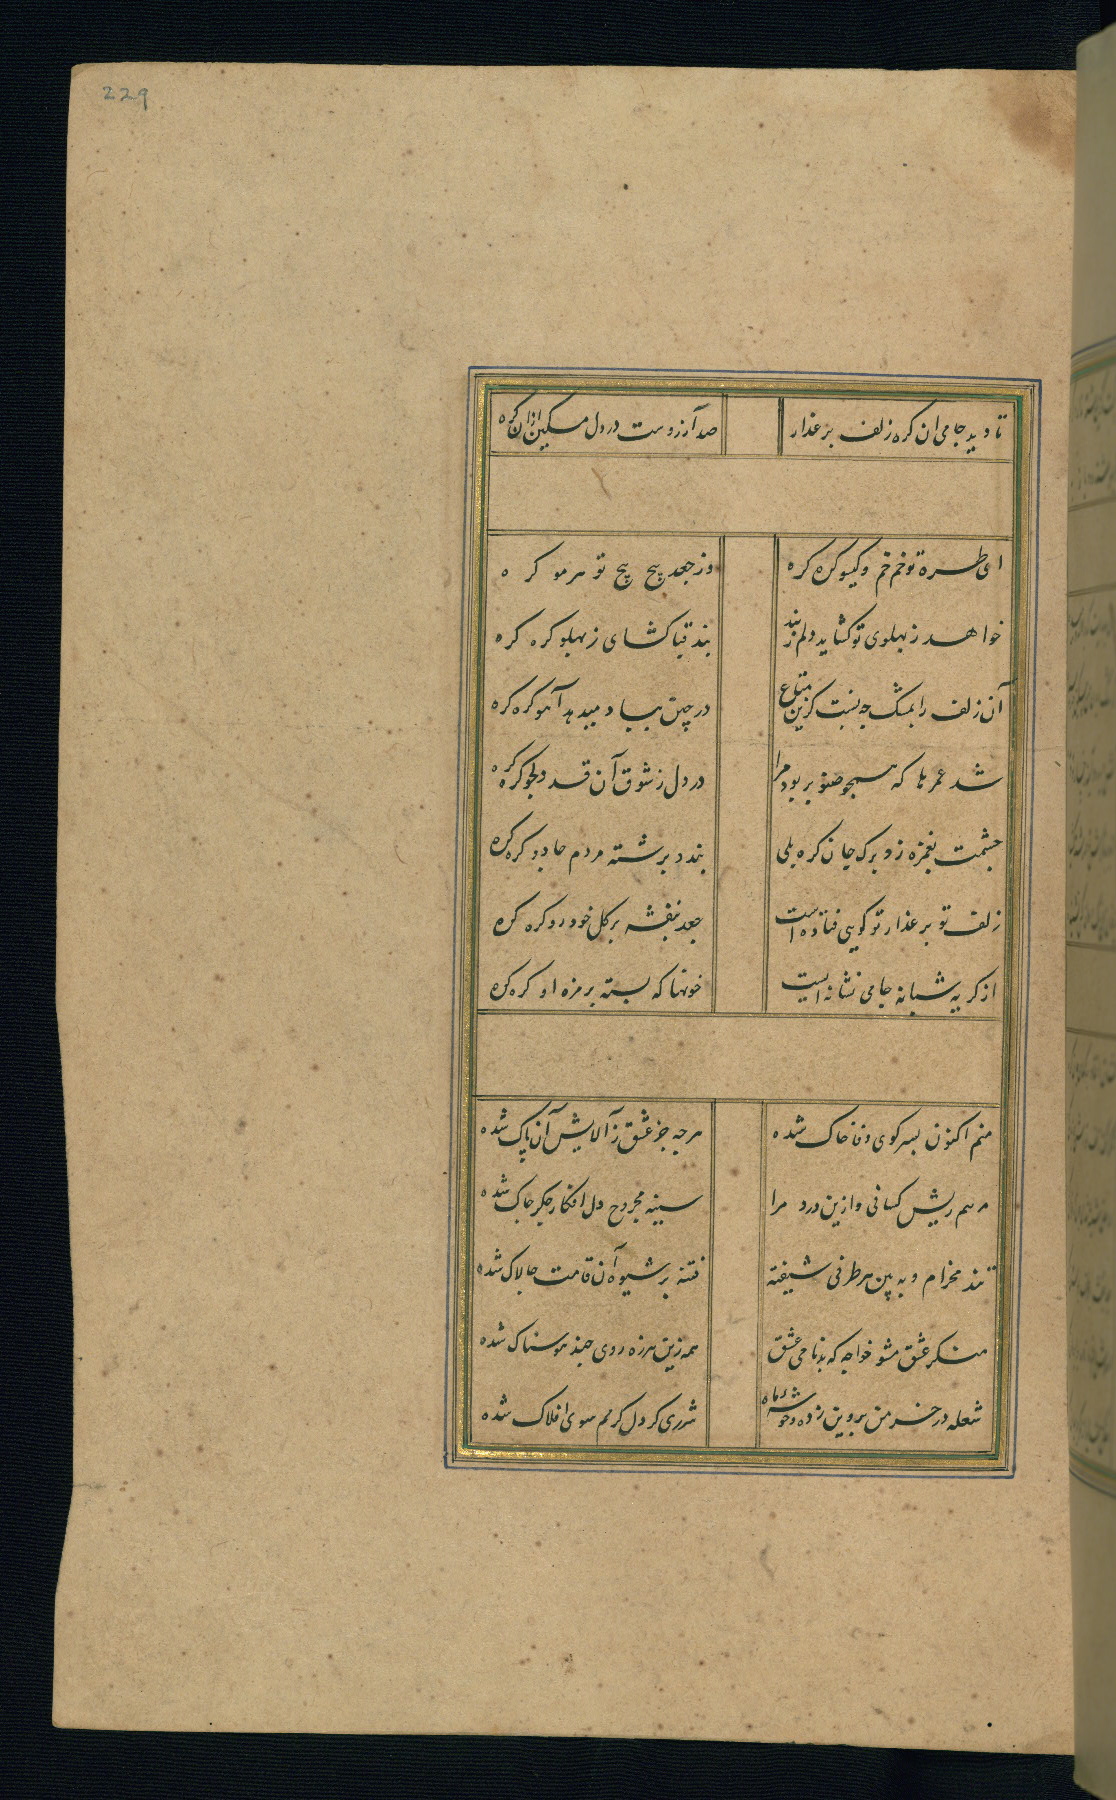 229
تا دید جامی ان کره زلف بر عذار صد آرزوست در دل مسکین ازان کره
ای طره تو خم خم و کیسو کره کره وز جعد پیچ پیچ تو هر مو کره
خواهد ز پهلوی تو کشاید دلم ز بند بند قبا کشای ز پهلو کره کره
آن زلف را بمشک چه نسبت کزین متاع در چین بباد میدهد آهو کره کره
شد عمرها که همچو صنوبر بود مرا در دل ز شوق آن قد دلجو کره کره
چشمت بغمزه زد بر ک جان کره بلی بندد برشته مردم جادو کره کره
زلف تو بر عذار تو کویی فتاده است جعد بنفشه بر کل خودرو کره کره
از کریه شبانه جامی نشانه ایست خونها که بسته بر مژه او کره کره
منم اکنون بسر کوی وفا خاک شده هرچه جز عشق ز آلایش آن پاک شده
مرهم ریش کسانی و ازین درد مرا سینه مجروح دل افکار جکر چاک شده
تند مخرام و به بین هر طرفی شیفته فتنه بر شیوه آن قامت چالاک شده
منکر عشق مشو خواجه که بدنامی عشق همه زین هرزه روی چند هوسناک شده
شعله در خرمن پروین زده و خوشه ماه شرری کز دل کرمم سوی افلاک شده